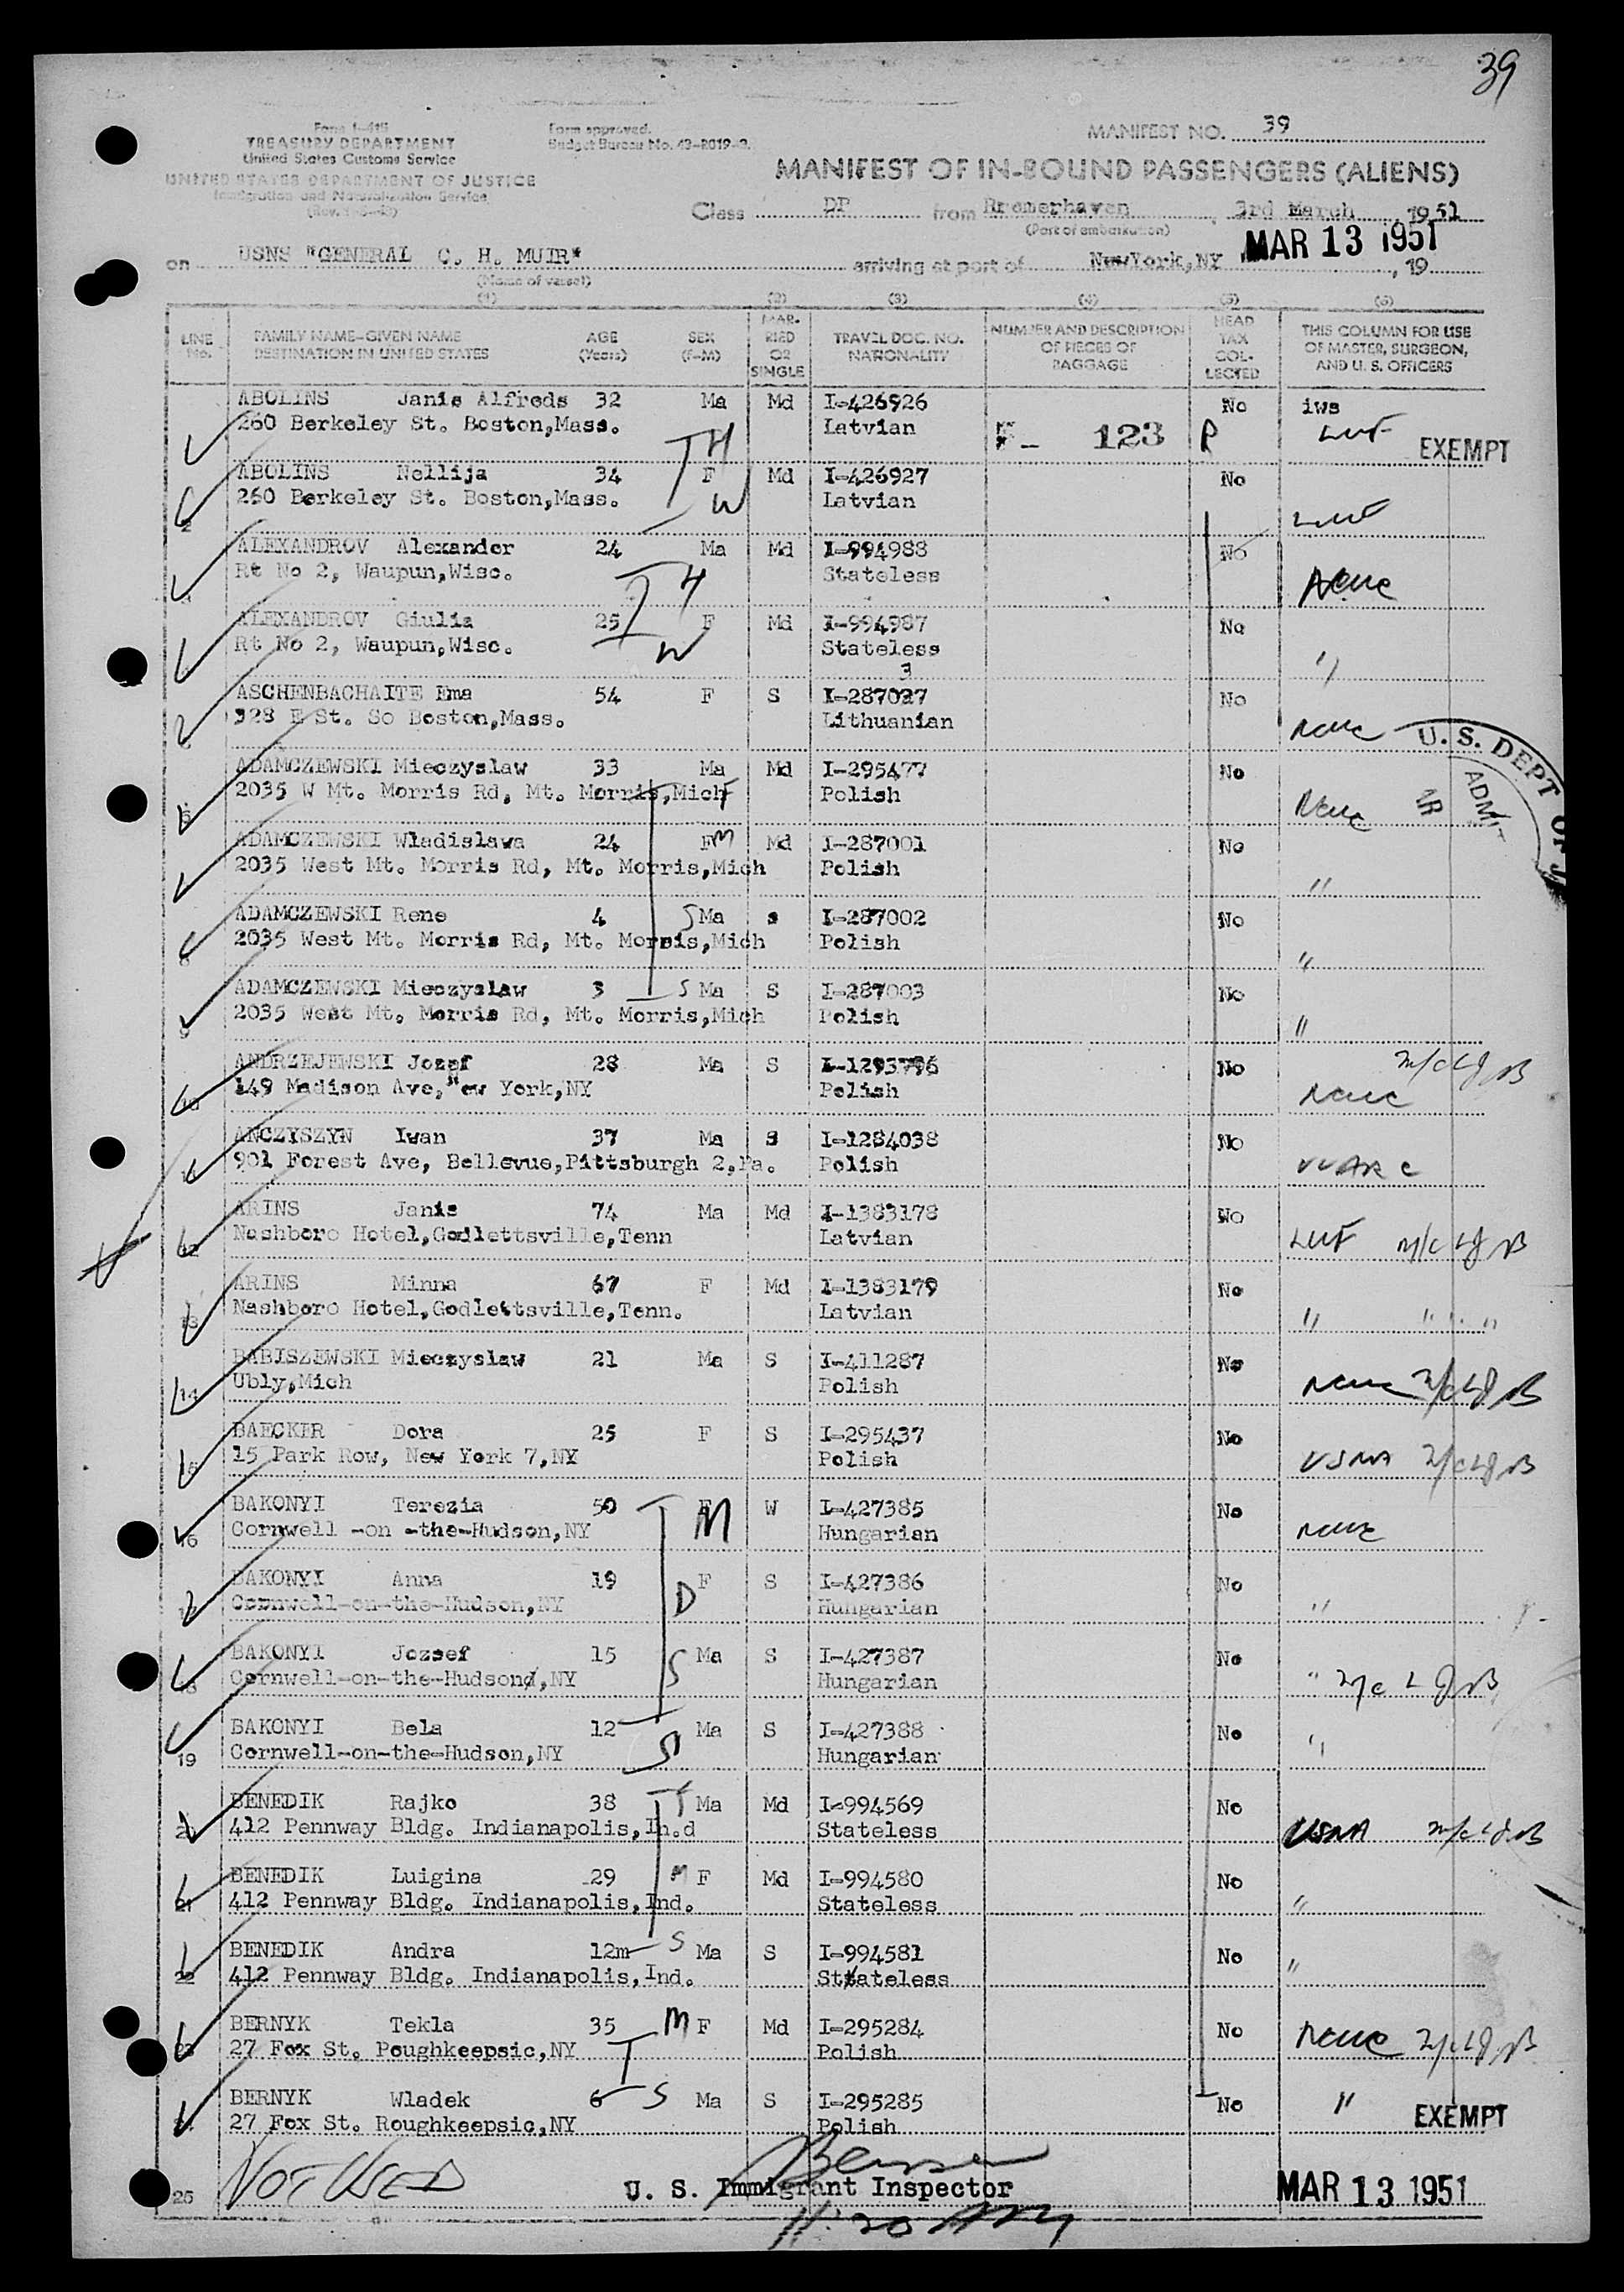 39
Form I-415
TREASURY DEPARTMENT
United States Customs Service
UNITED STATES DEPARTMENT OF JUSTICE
Immigration and Naturalization Service
Form approved.
Budget Bureau No. 43-R019-2.
MANIFEST NO. 39
MANIFEST OF IN-BOUND PASSENGERS (ALIENS)
Class DP from Bremerhaven, 3rd March, 1951
(Port of embarkation)
on USNS "GENERAL C. H. MUIR" arriving at port of New York,NY MAR 13 1951, 19
(Name of vessel)
(1) (2) (3) (4) (5) (6)
LINE No. FAMILY NAME-GIVEN NAME DESTINATION IN UNITED STATES AGE (Years) SEX (F-M) MARRIED OR SINGLE TRAVEL DOC. NO. NATIONALITY NUMBER AND DESCRIPTION OF PIECES OF BAGGAGE HEAD TAX COLLECTED THIS COLUMN FOR USE OF MASTER, SURGEON, AND U. S. OFFICERS
ABOLINS Janis Alfreds 32 Ma Md I-426926 No iws
260 Berkeley St. Boston,Mass. H Latvian 123 P LWF EXEMPT
ABOLINS Nellija 34 F Md I-426927 No
2 260 Berkeley St. Boston,Mass. W Latvian LWF
ALEXANDROV Alexander 24 Ma Md I-994988 No
Rt No 2, Waupun,Wisc. H Stateless NCWC
ALEXANDROV Giulia 25 F Md I-994987 No
Rt No 2, Waupun,Wisc. W Stateless "
3
ASCHENBACHAITE Ema 54 F S I-287027 No
328 E St. So Boston,Mass. Lithuanian NCWC
U. S. DEPT OF J
ADMIT
ADAMCZEWSKI Mieczyslaw 33 Ma Md I-295477 No
2035 W Mt. Morris Rd, Mt. Morris,Mich F Polish NCWC
ADAMCZEWSKI Wladislawa 24 F M Md I-287001 No
2035 West Mt. Morris Rd, Mt. Morris,Mich Polish "
ADAMCZEWSKI Rene 4 S Ma s I-287002 No
8 2035 West Mt. Morris Rd, Mt. Morris,Mich Polish "
ADAMCZEWSKI Mieczyslaw 3 S Ma S I-287003 No
9 2035 West Mt. Morris Rd, Mt. Morris,Mich Polish "
ANDRZEJEWSKI Jozef 28 Ma S I-1293796 No
10 149 Madison Ave, New York,NY Polish NCWC
ANCZYSZYN Iwan 37 Ma S I-1284038 No
901 Forest Ave, Bellevue,Pittsburgh 2,Pa. Polish
ARINS Janis 74 Ma Md I-1383178 No
12 Nashboro Hotel,Godlettsville,Tenn Latvian LWF
ARINS Minna 67 F Md I-1383179 No
13 Nashboro Hotel,Godlettsville,Tenn. Latvian " " " "
BABISZEWSKI Mieczyslaw 21 Ma S I-411287 No
14 Ubly,Mich Polish NCWC
BAECKER Dora 25 F S I-295437 No
15 15 Park Row, New York 7,NY Polish USNA
BAKONYI Terezia 50 F M W I-427385 No
16 Cornwell -on -the-Hudson,NY Hungarian NCWC
BAKONYI Anna 19 F S I-427386 No
17 Cornwell-on-the-Hudson,NY D Hungarian "
BAKONYI Jozsef 15 Ma S I-427387 No
18 Cornwell-on-the-Hudsond,NY S Hungarian "
BAKONYI Bela 12 Ma S I-427388 No
19 Cornwell-on-the-Hudson,NY S Hungarian "
BENEDIK Rajko 38 F Ma Md I-994569 No
20 412 Pennway Bldg. Indianapolis,In.d Stateless USNA
BENEDIK Luigina 29 M F Md I-994580 No
21 412 Pennway Bldg. Indianapolis,Ind. Stateless "
BENEDIK Andra 12m S Ma S I-994581 No
22 412 Pennway Bldg. Indianapolis,Ind. Sttateless "
BERNYK Tekla 35 M F Md I-295284 No
23 27 Fox St. Poughkeepsic,NY Polish NCWC
BERNYK Wladek 6 S Ma S I-295285 No "
27 Fox St. Roughkeepsic,NY Polish EXEMPT
25 NOT USED U. S. Immigrant Inspector MAR 13 1951
11:20 AM